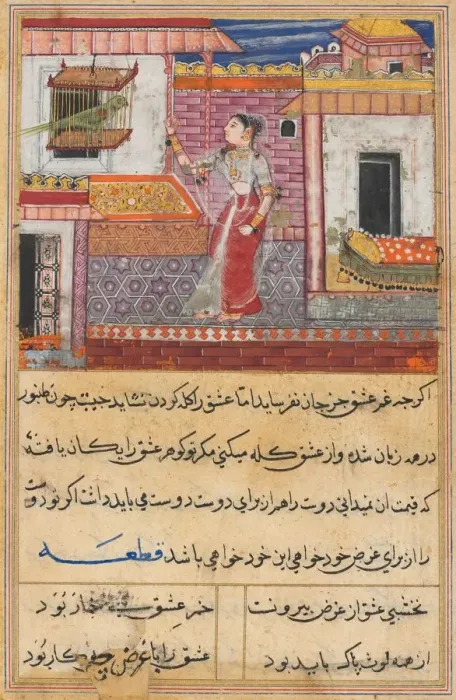 اکرچه غم عشق جز جان نفرساید اما عشق را کله کردن نشاید جیست چون طنبور
درهمه زبان شده و از عشق کله میکنی مکر تو کوهر عشق رایکان یافته
که قیمت ان نمیدانی دوست را هم از برای دوست دوست می باید داشت اکر تو دوست
را از برای غرض خود خواهی این خود خواهی باشد قطعه
نخشبی عشق از غرض بیرونست خمر عشق خمار بود
از همه لوث پاک باید بود عشق را با غرض چه کار بود